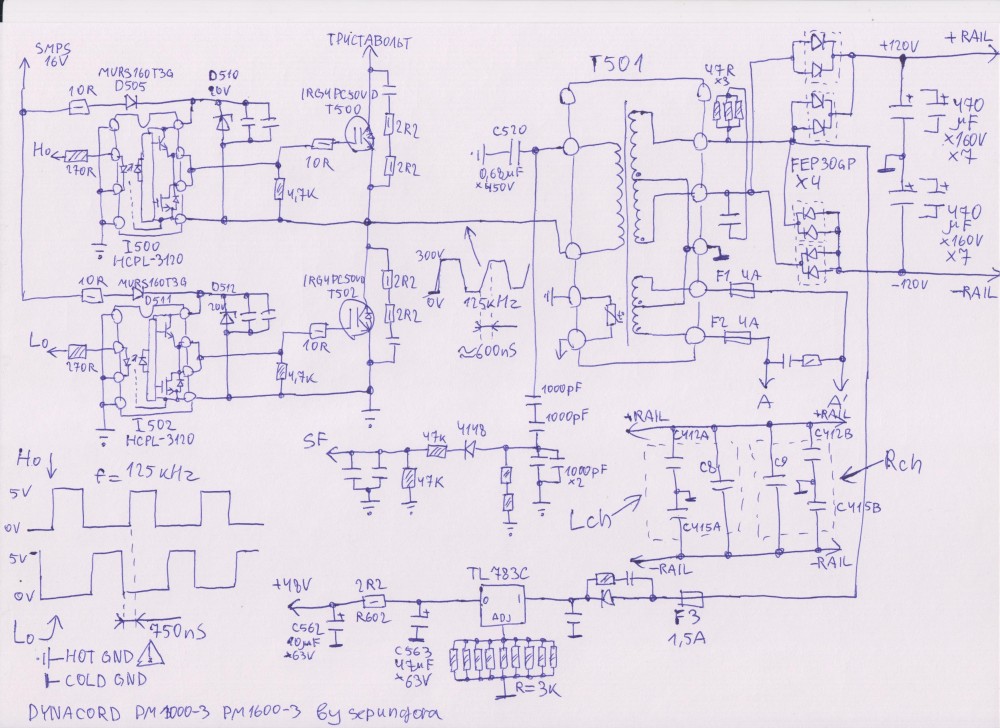 SMPS
16V
10R
MURS160T3G
D505
D510
20V
Ho
270R
I500
HCPL-3120
4,7K
10R
ТРИСТАВОЛЬТ
IRG4PC50UD
T500
2R2
2R2
10R
MURS160T3G
D511
D512
20V
Lo
270R
I502
HCPL-3120
4,7K
10R
IRG4PC50UD
T502
2R2
2R2
300V
0V
125kHz
≈600nS
C520
0,68µF
×450V
T501
47R
×3
FEP30GP
×4
+120V
+RAIL
470
µF
×160V
×7
470
µF
×160V
×7
-120V
-RAIL
F1 4A
F2 4A
A
A'
1000pF
1000pF
1000pF
×2
SF
47K
4148
47K
+RAIL
+RAIL
C412A
C8
C9
C412B
C415A
C415B
Lch
Rch
-RAIL
-RAIL
Ho
f=125kHz
5V
0V
5V
0V
Lo
750nS
HOT GND
COLD GND
+48V
2R2
R602
C562
×63V
C563
47µF
×63V
TL783C
0
1
ADJ
R=3K
F3
1,5A
DYNACORD PM1000-3 PM1600-3 by sepundora